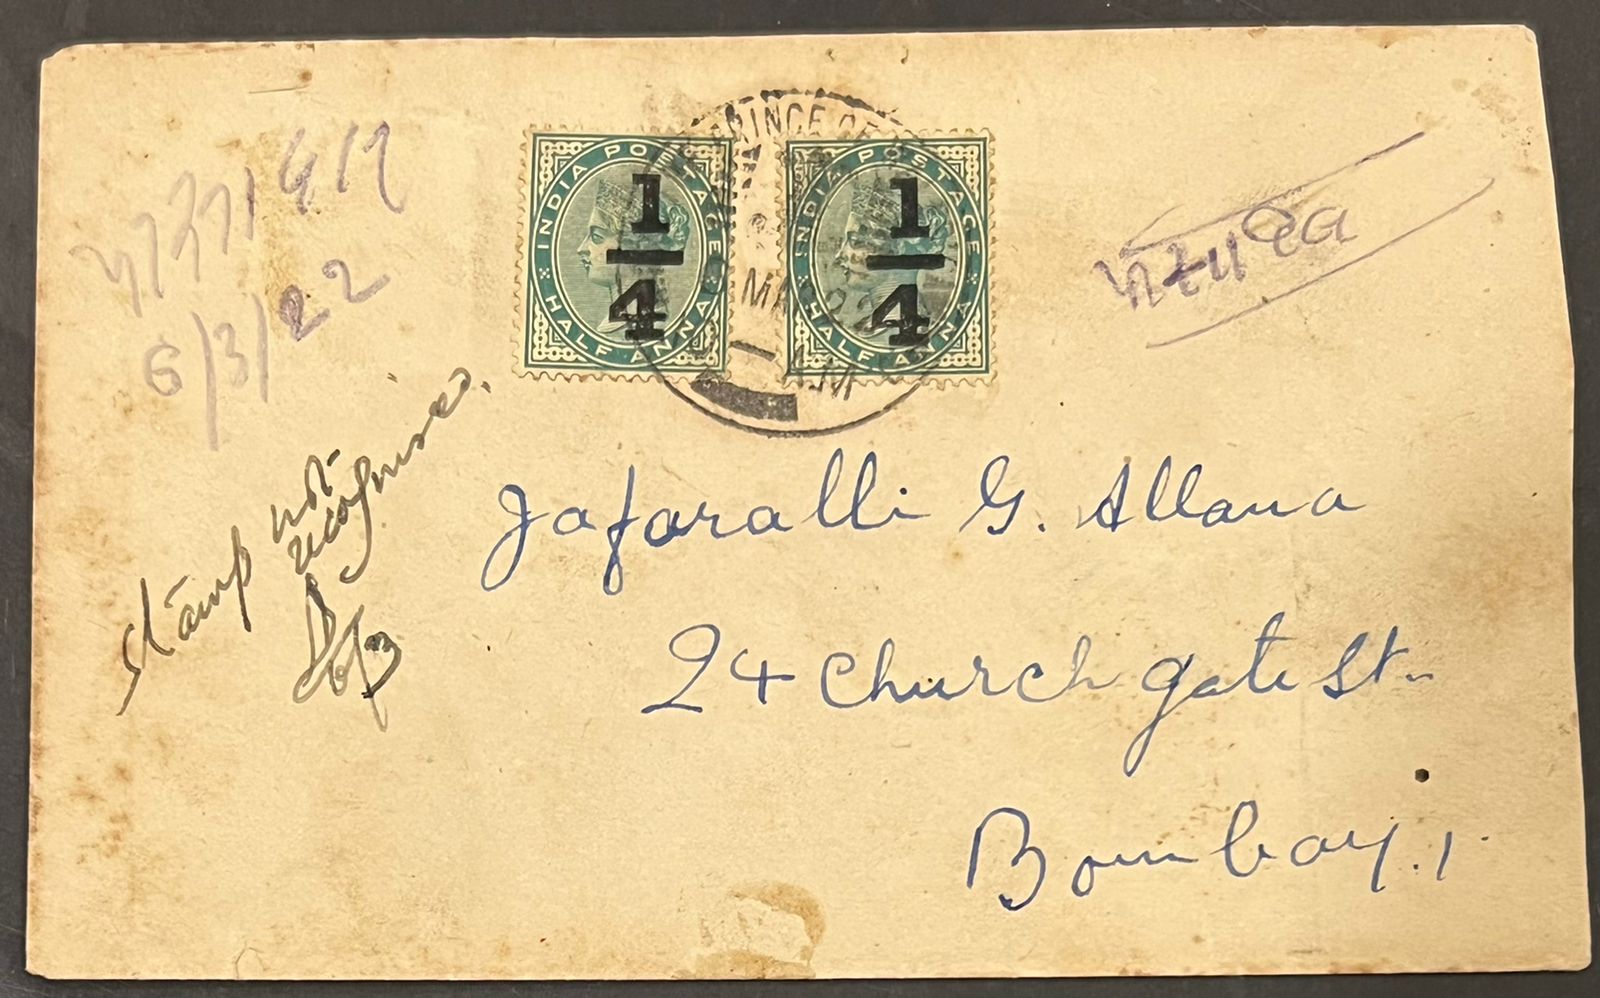 PRINCE OF
INDIA POSTAGE
HALF ANNA
1/4
INDIA POSTAGE
HALF ANNA
1/4
6/3/22
Stamp not
recognised.
Jafaralli G. Allana
24 Church gate St.
Bombay.1.